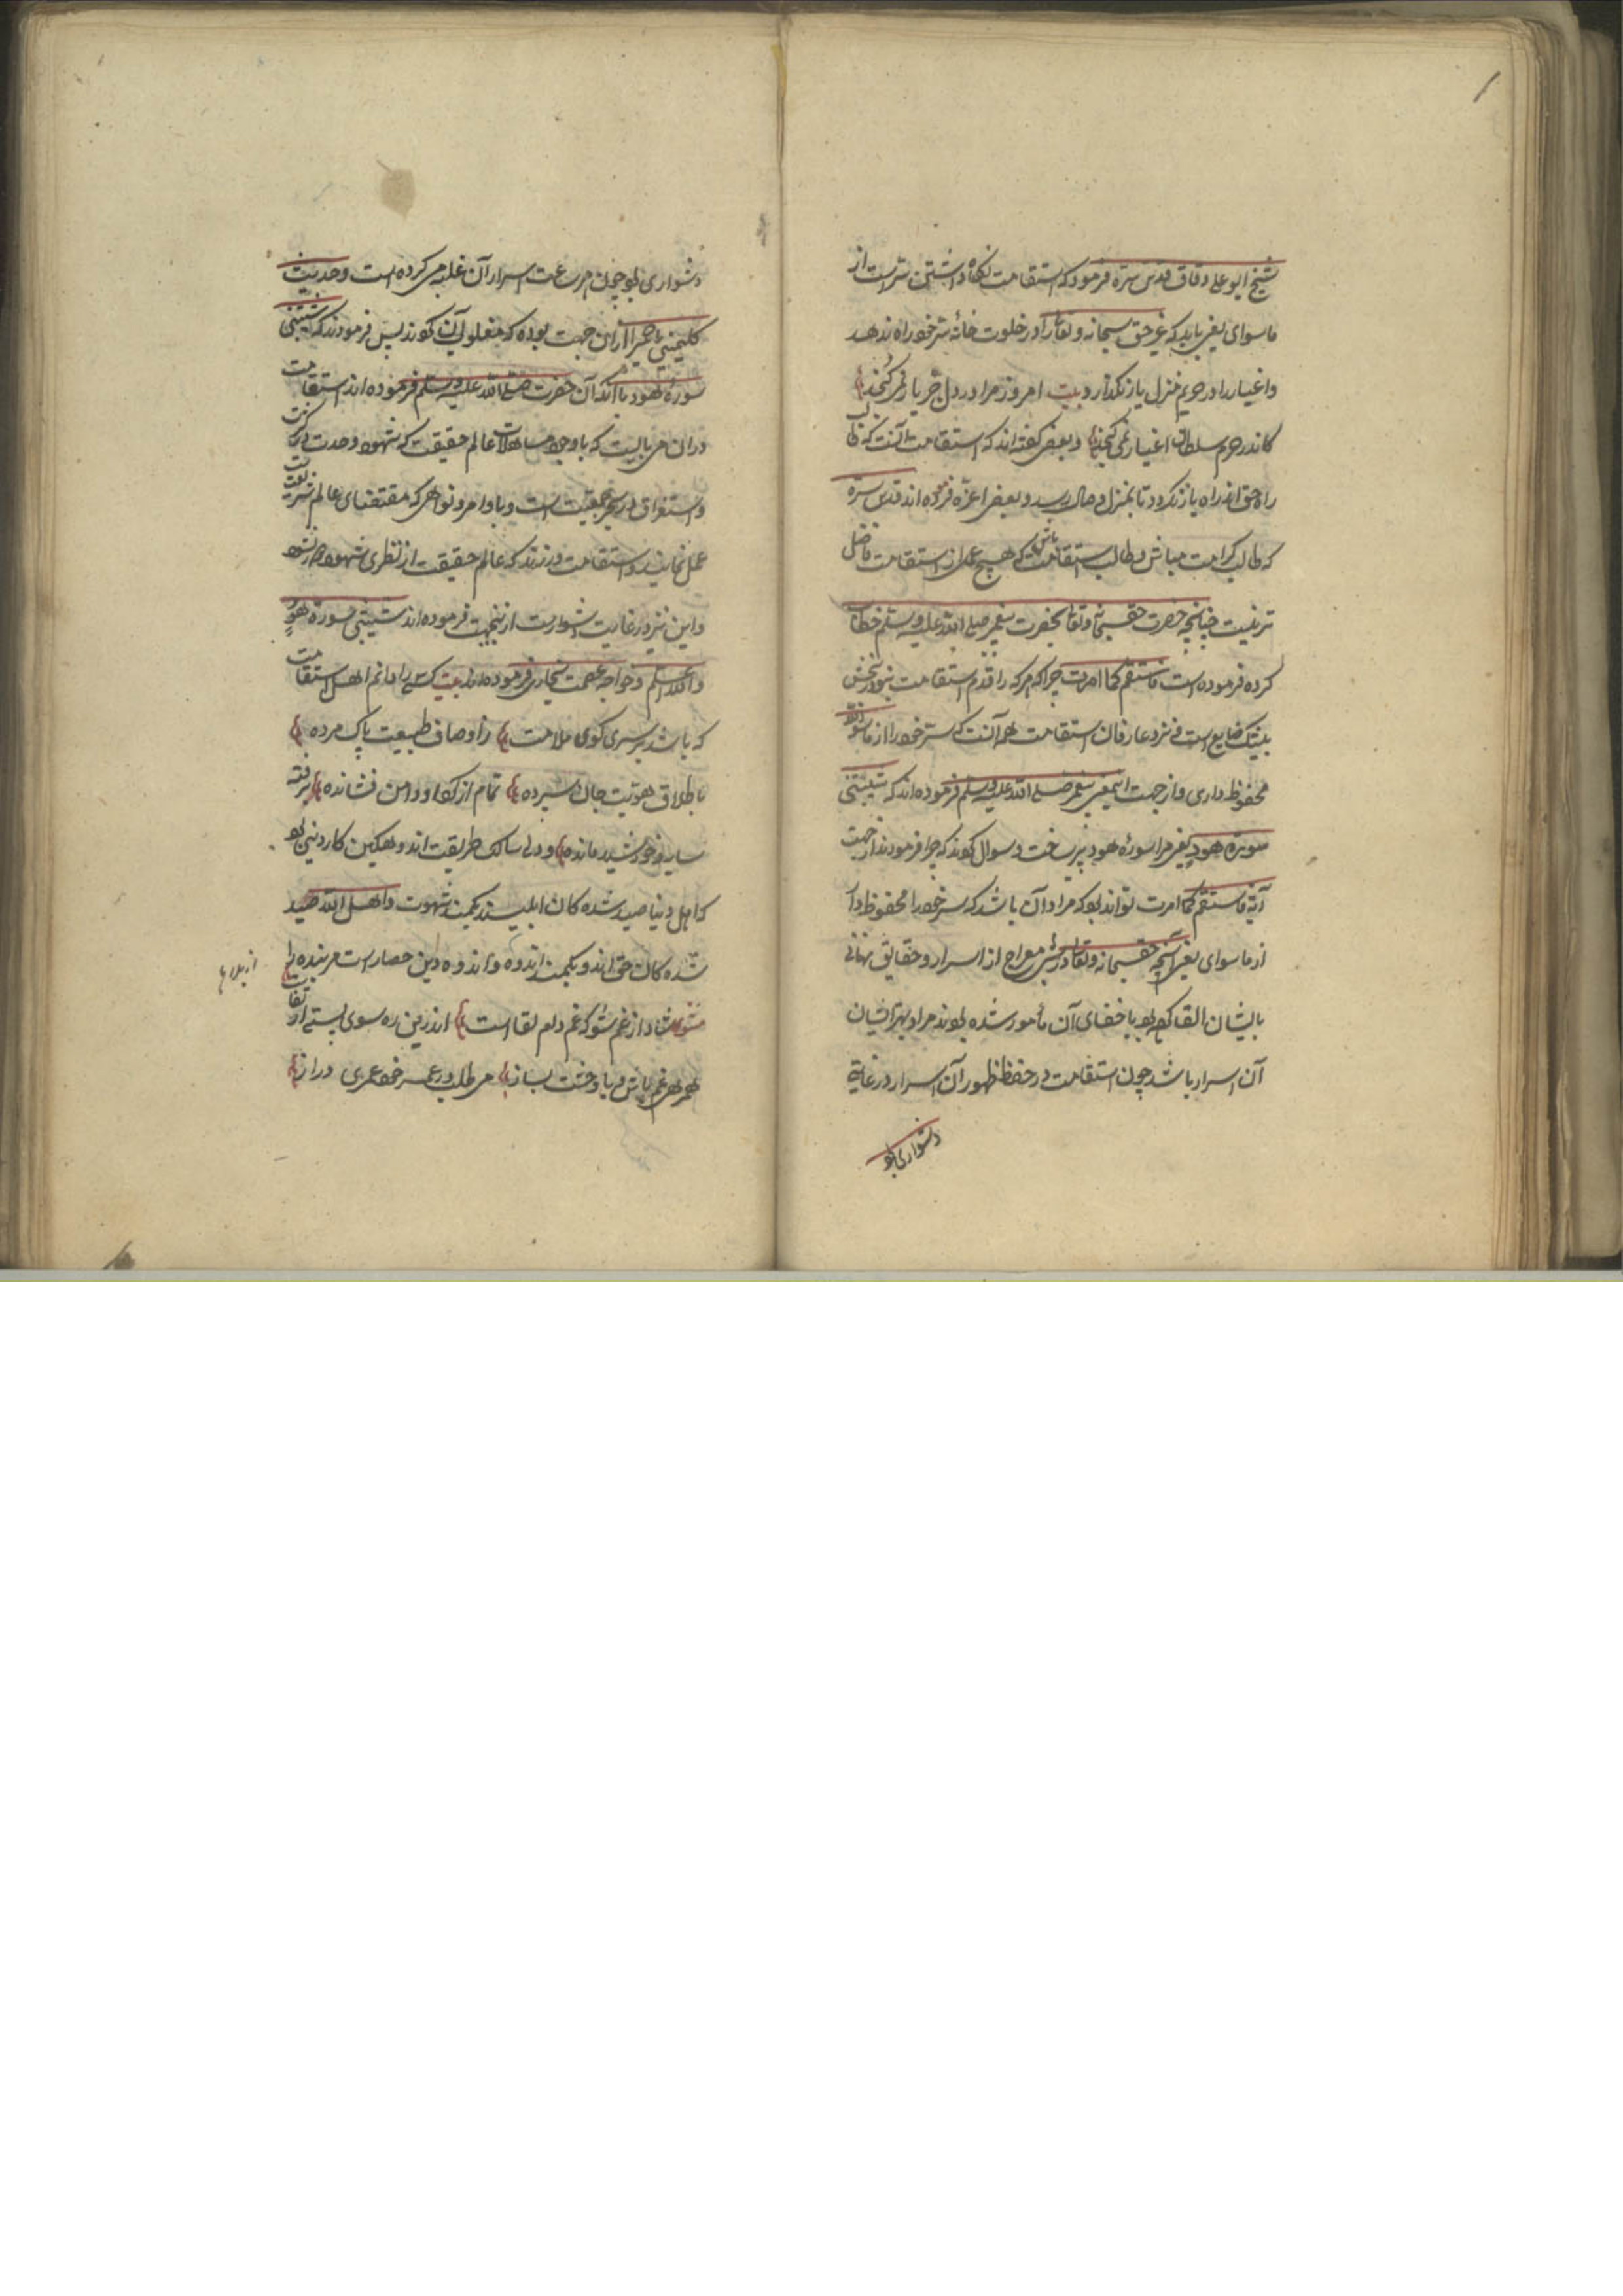 شیخ ابو علی دقاق قدس سره فرمود که استقامت نگاه داشتن سرّست از
ماسوای یعنی باید که غیر حق سبحانه و تعالی را در خلوت خانهٔ سرّ خود راه ندهد
واغیار را در حریم منزل یار نگذارد بیت امروز مرا در دل جز یار نمی گنجد
کاندر حرم سلطان اغیار نمی گنجد و بعضی گفته اند که استقامت آنست که طالب
راه حق از راه باز نگردد تا بمنزل وصال رسد و بعضی اعزّه فرموده اند قدس سرّه
که طالب کرامت مباش و طالب استقامت باش که هیچ عمل از استقامت فاضل
تر نیست چنانچه حضرت حق سبحانه و تعالی بحضرت پیغمبر صلی الله علیه و سلم خطاب
کرده فرموده است فاستقم کما امرت چرا که هر که را قدم استقامت نبود رنجش
بیشک ضایع است و نزد عارفان استقامت هم آنست که سرّ خود را از ماسوی الله
محفوظ داری و از جهت این معنی پیغمبر صلی الله علیه و سلم فرموده اند که شیبتنی
سورة هود یعنی مرا سورهٔ هود پیر ساخت و سوال کردند که چرا فرمودند از جهت
آیهٔ فاستقم کما امرت تواند بود که مراد آن باشد که سرّ خود را محفوظ دار
از ماسوای یعنی آنچه حق سبحانه و تعالی در شب معراج از اسرار و حقایق نهانی
بایشان القا کرده بود باخفای آن مأمور شده بودند مراد بسرّ ایشان
آن اسرار باشد چون استقامت در حفظ ظهور آن اسرار در غایة
دشواری بود
دشواری بود چون سرعت اسرار آن غلبه می کرده است و حدیث
کلمینی یا حمیرا از آن جهت بوده که مغلوب آن گوند پس فرمودند که شیبتنی
سورة هود با آنکه آن حضرت صلی الله علیه و سلم فرموده اند استقامت
در آن می بایست که با وجود مشاهدات عالم حقیقت که شهود وحدت در کثرت
و استغراق در بحر جمعیت است و باوامر و نواهی که مقتضای عالم شریعت
عمل نمایند و استقامت ورزند که عالم حقیقت از نظر شهود دور نشود
و این نیز در غایت دشواریست ازینجهت فرموده اند شیبتنی سورة هود
والله اعلم و خواجه عصمت بخاری فرموده اند بیت کسی را دانم اهل استقامت
که باشد بر سر کوی ملامت ز اوصاف طبیعت پاک مرده
باطلاق هویت جان سپرده تمام از گرد او دامن فشانده برفته
سایه و خورشید مانده و دلی سالک طریقت اندوهگین کار دینی بود
که اهل دنیا صید شدهٔ کمان ابلیسند بکمند شهوت و اهل الله صید
شده کمان حق اند و بکمند اندوه و اندوه دین حصار است مر بنده را از بلاها
مثنوی شاد از غم شو که غم دام لقا است اندرین ره سوی پستی ارتقاست
همره غم باش و با وحشت بساز می طلب در عمر خود عمری دراز